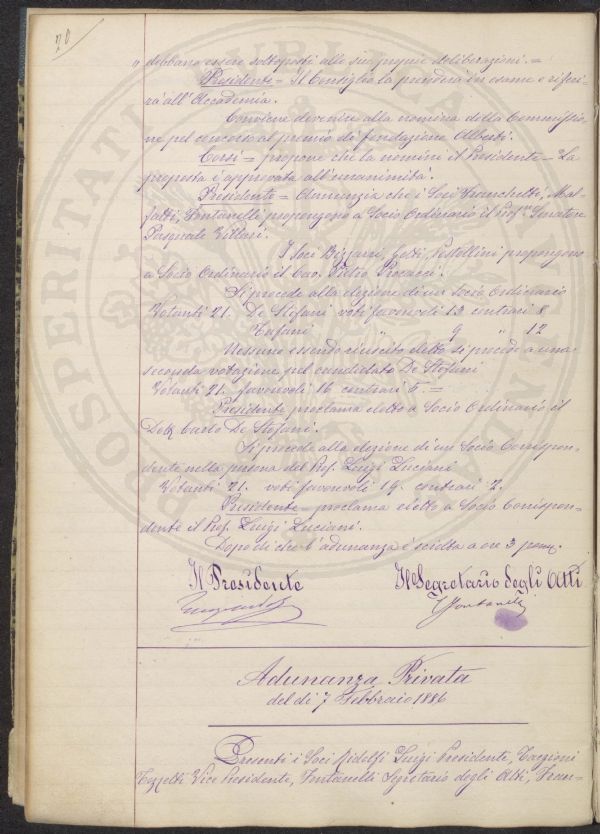 70
debbano essere sottoposti alle sue proprie deliberazioni. =
Presidente = Il Consiglio la prenderà in esame e riferi-
rà all'Accademia.
Conviene devenire alla nomina della Commissio-
ne pel concorso al premio di fondazione Alberti.
Corsi = propone che la nomini il Presidente = La
proposta è approvata all'unanimità.
Presidente = Annunzia che i Soci Franchetti, Mal-
fatti, Fontanelli propongono a Socio Ordinario il Prof. Senatore
Pasquale Villari.
I Soci Bizzarri, Gotti, Pestellini propongono
a Socio Ordinario il Cav. Pietro Procacci.
Si procede alla elezione di un Socio Ordinario
Votanti 21. De Stefani voti favorevoli 13 contrari 8
" 9 " 12
Nessuno essendo riuscito eletto si procede a una
seconda votazione pel candidato De Stefani
Votanti 21. favorevoli 16 contrari 5 =
Presidente proclama eletto a Socio Ordinario il
Dott. Carlo De Stefani.
Si procede alla elezione di un Socio Corrispon-
dente nella persona del Prof. Luigi Luciani
Votanti 21. voti favorevoli 19. contrari 2.
Presidente = proclama eletto a Socio Corrispon-
dente il Prof. Luigi Luciani.
Dopo di che l'adunanza è sciolta a ore 3 pom.
Il Presidente Il Segretario degli Atti
Fontanelli
Adunanza Privata
del dì 7 Febbraio 1886
Presenti i Soci Ridolfi Luigi Presidente, Targioni
Tozzetti Vice Presidente, Fontanelli Segretario degli Atti, Fran-
PROSPERITATI PUBLICAE